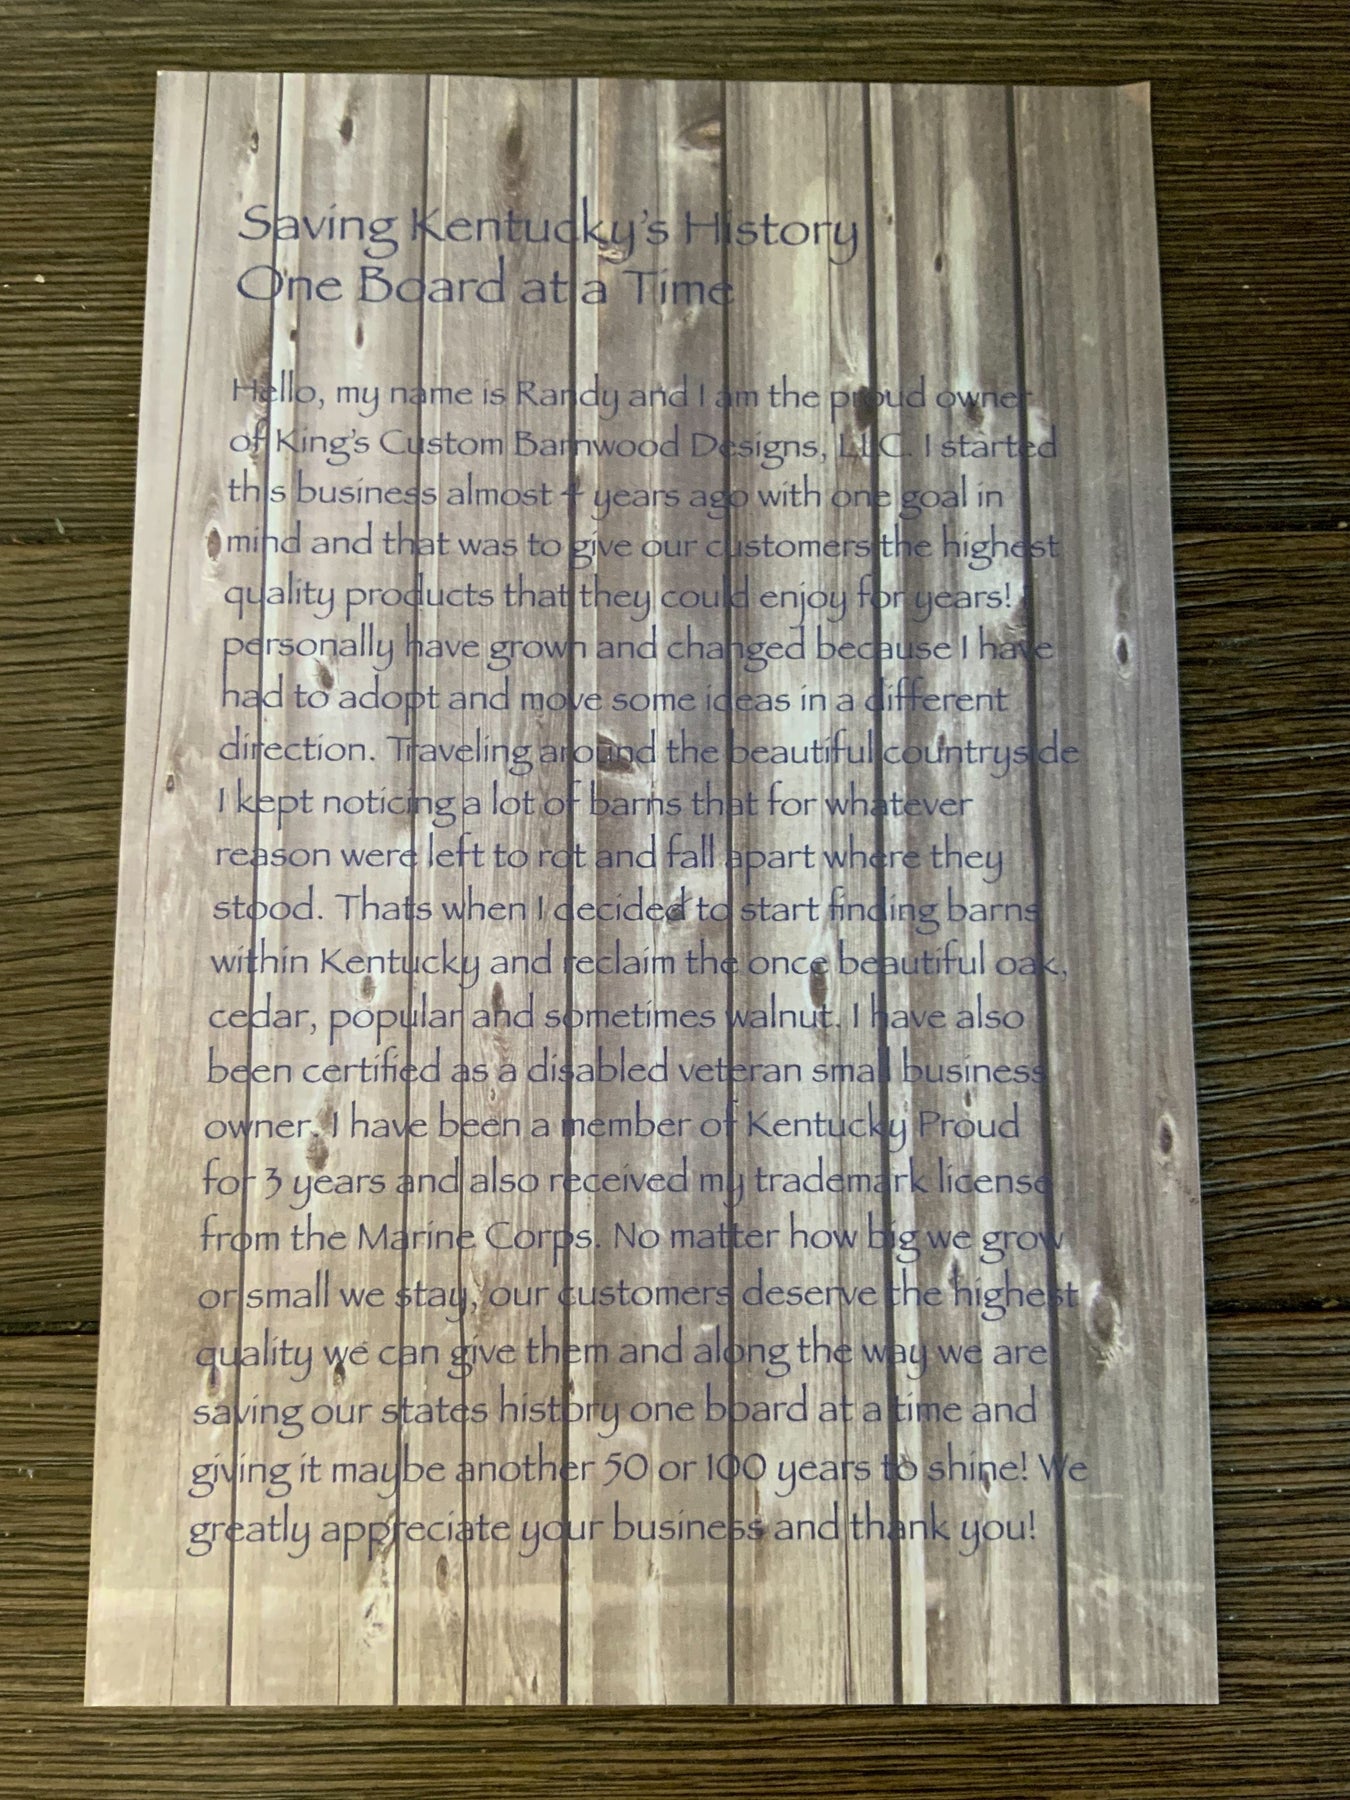 Saving Kentucky's History
One Board at a Time
Hello, my name is Randy and I am the proud owner
of King's Custom Barnwood Designs, LLC. I started
this business almost 4 years ago with one goal in
mind and that was to give our customers the highest
quality products that they could enjoy for years! I
personally have grown and changed because I have
had to adopt and move some ideas in a different
direction. Traveling around the beautiful countryside
I kept noticing a lot of barns that for whatever
reason were left to rot and fall apart where they
stood. Thats when I decided to start finding barns
within Kentucky and reclaim the once beautiful oak,
cedar, popular and sometimes walnut. I have also
been certified as a disabled veteran small business
owner. I have been a member of Kentucky Proud
for 3 years and also received my trademark license
from the Marine Corps. No matter how big we grow
or small we stay, our customers deserve the highest
quality we can give them and along the way we are
saving our states history one board at a time and
giving it maybe another 50 or 100 years to shine! We
greatly appreciate your business and thank you!